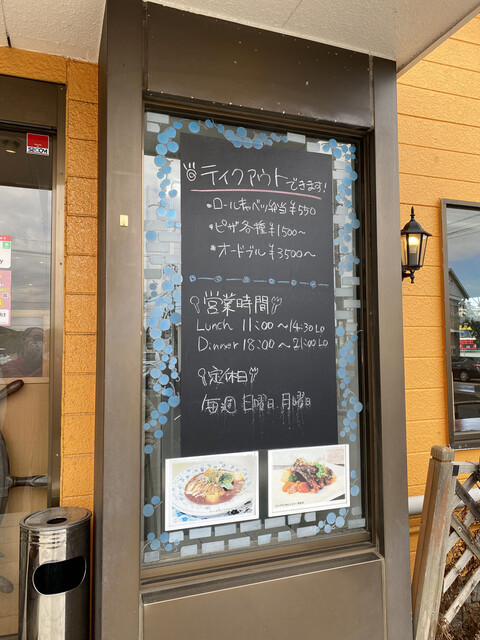 SECOM
テイクアウトできます!
•ロールキャベツ弁当¥550
•ピザ各種¥1500〜
•オードブル¥3500〜
営業時間
Lunch 11:00〜14:30 LO
Dinner 18:00〜21:00 LO
定休日
毎週 日曜日 月曜日